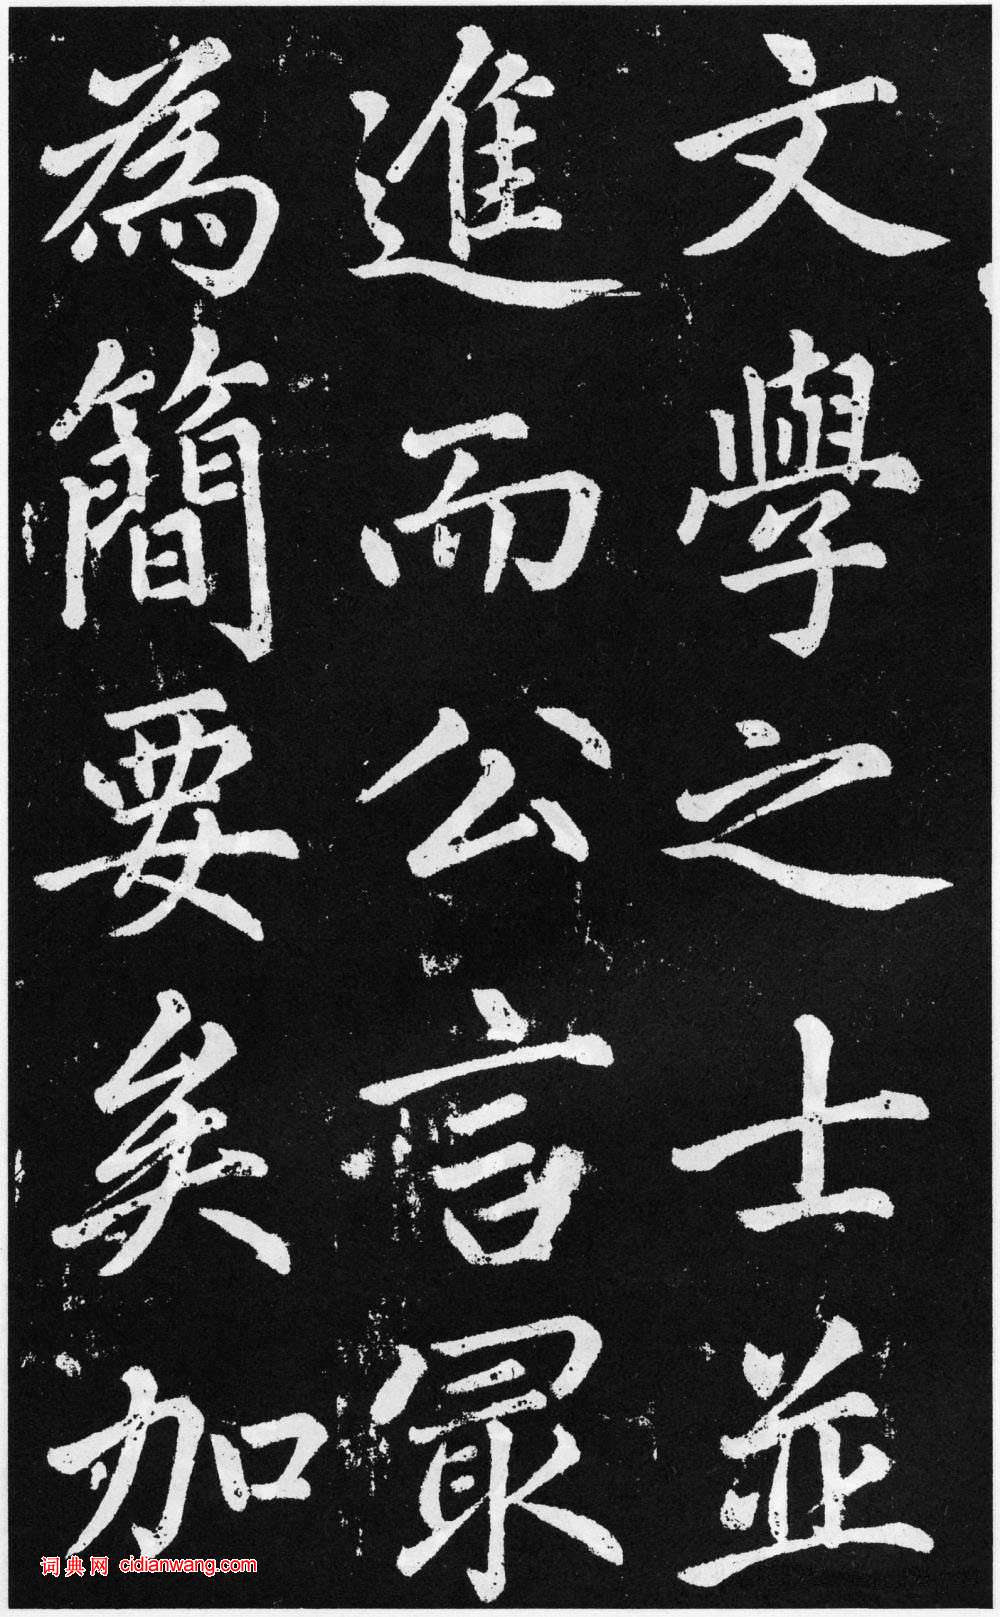 文學之士並
進而公言冣
為簡要矣加
词典网 cidianwang.com